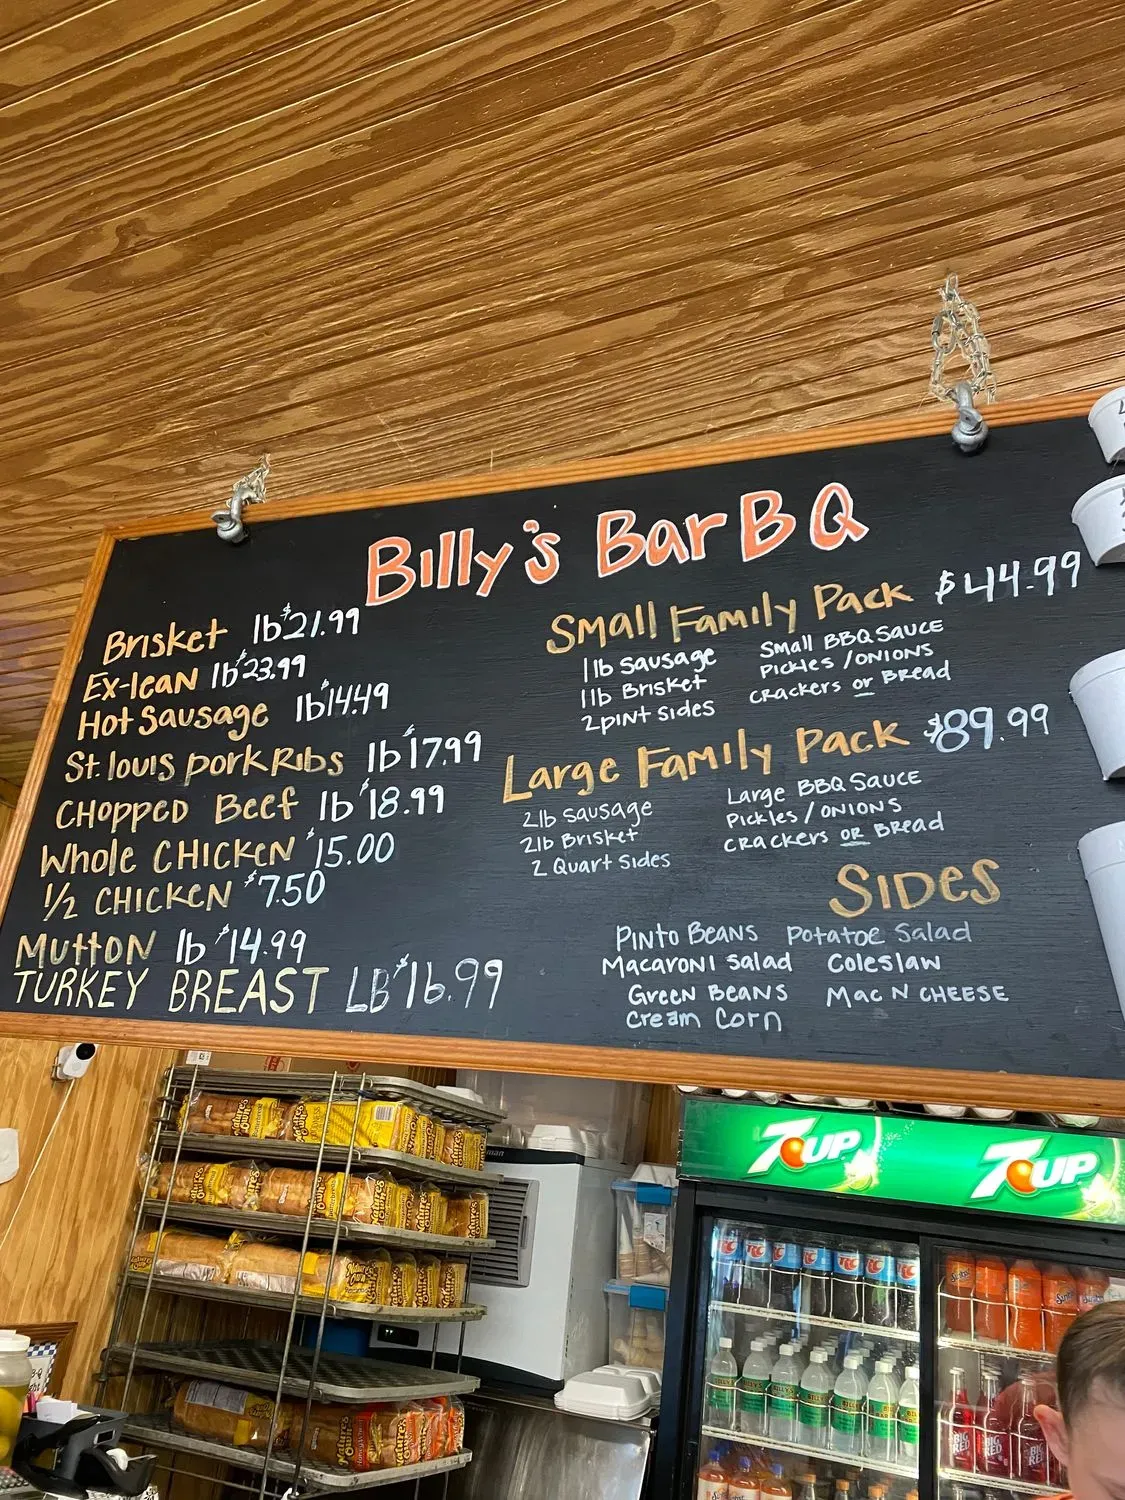 Billy's Bar B Q
Brisket lb $21.99
Ex-lean lb $23.99
Hot Sausage lb $14.49
St. louis pork Ribs lb $17.99
CHOPPED Beef lb $18.99
Whole CHICKEN $15.00
1/2 CHICKEN $7.50
Mutton lb $14.99
TURKEY BREAST LB $16.99
Small Family Pack $44.99
1 lb Sausage
1 lb Brisket
2 pint sides
Small BBQ Sauce
Pickles / ONIONS
crackers or Bread
Large Family Pack $89.99
2 lb Sausage
2 lb Brisket
2 Quart Sides
Large BBQ Sauce
Pickles / ONIONS
crackers OR Bread
SIDES
Pinto Beans Potatoe Salad
Macaroni Salad Coleslaw
Green Beans Mac N CHEESE
Cream Corn
7UP
7UP
Nature's Own
RC
Sunkist
BIG RED